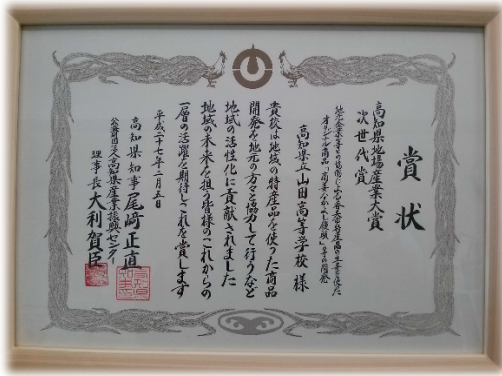 賞状
高知県地場産業大賞
次世代賞
地元企業等との協働による
オリジナル商品
の開発
高知県立山田高等学校 様
貴校は地域の特産品を使った商品
開発を地元の方々と協力して行うなど
地域の活性化に貢献されました
地域の未来を担う皆様のこれからの
一層の活躍を期待しこれを賞します
平成二十七年二月五日
高知県知事 尾﨑正直
公益財団法人高知県産業振興センター
理事長 大利賀臣